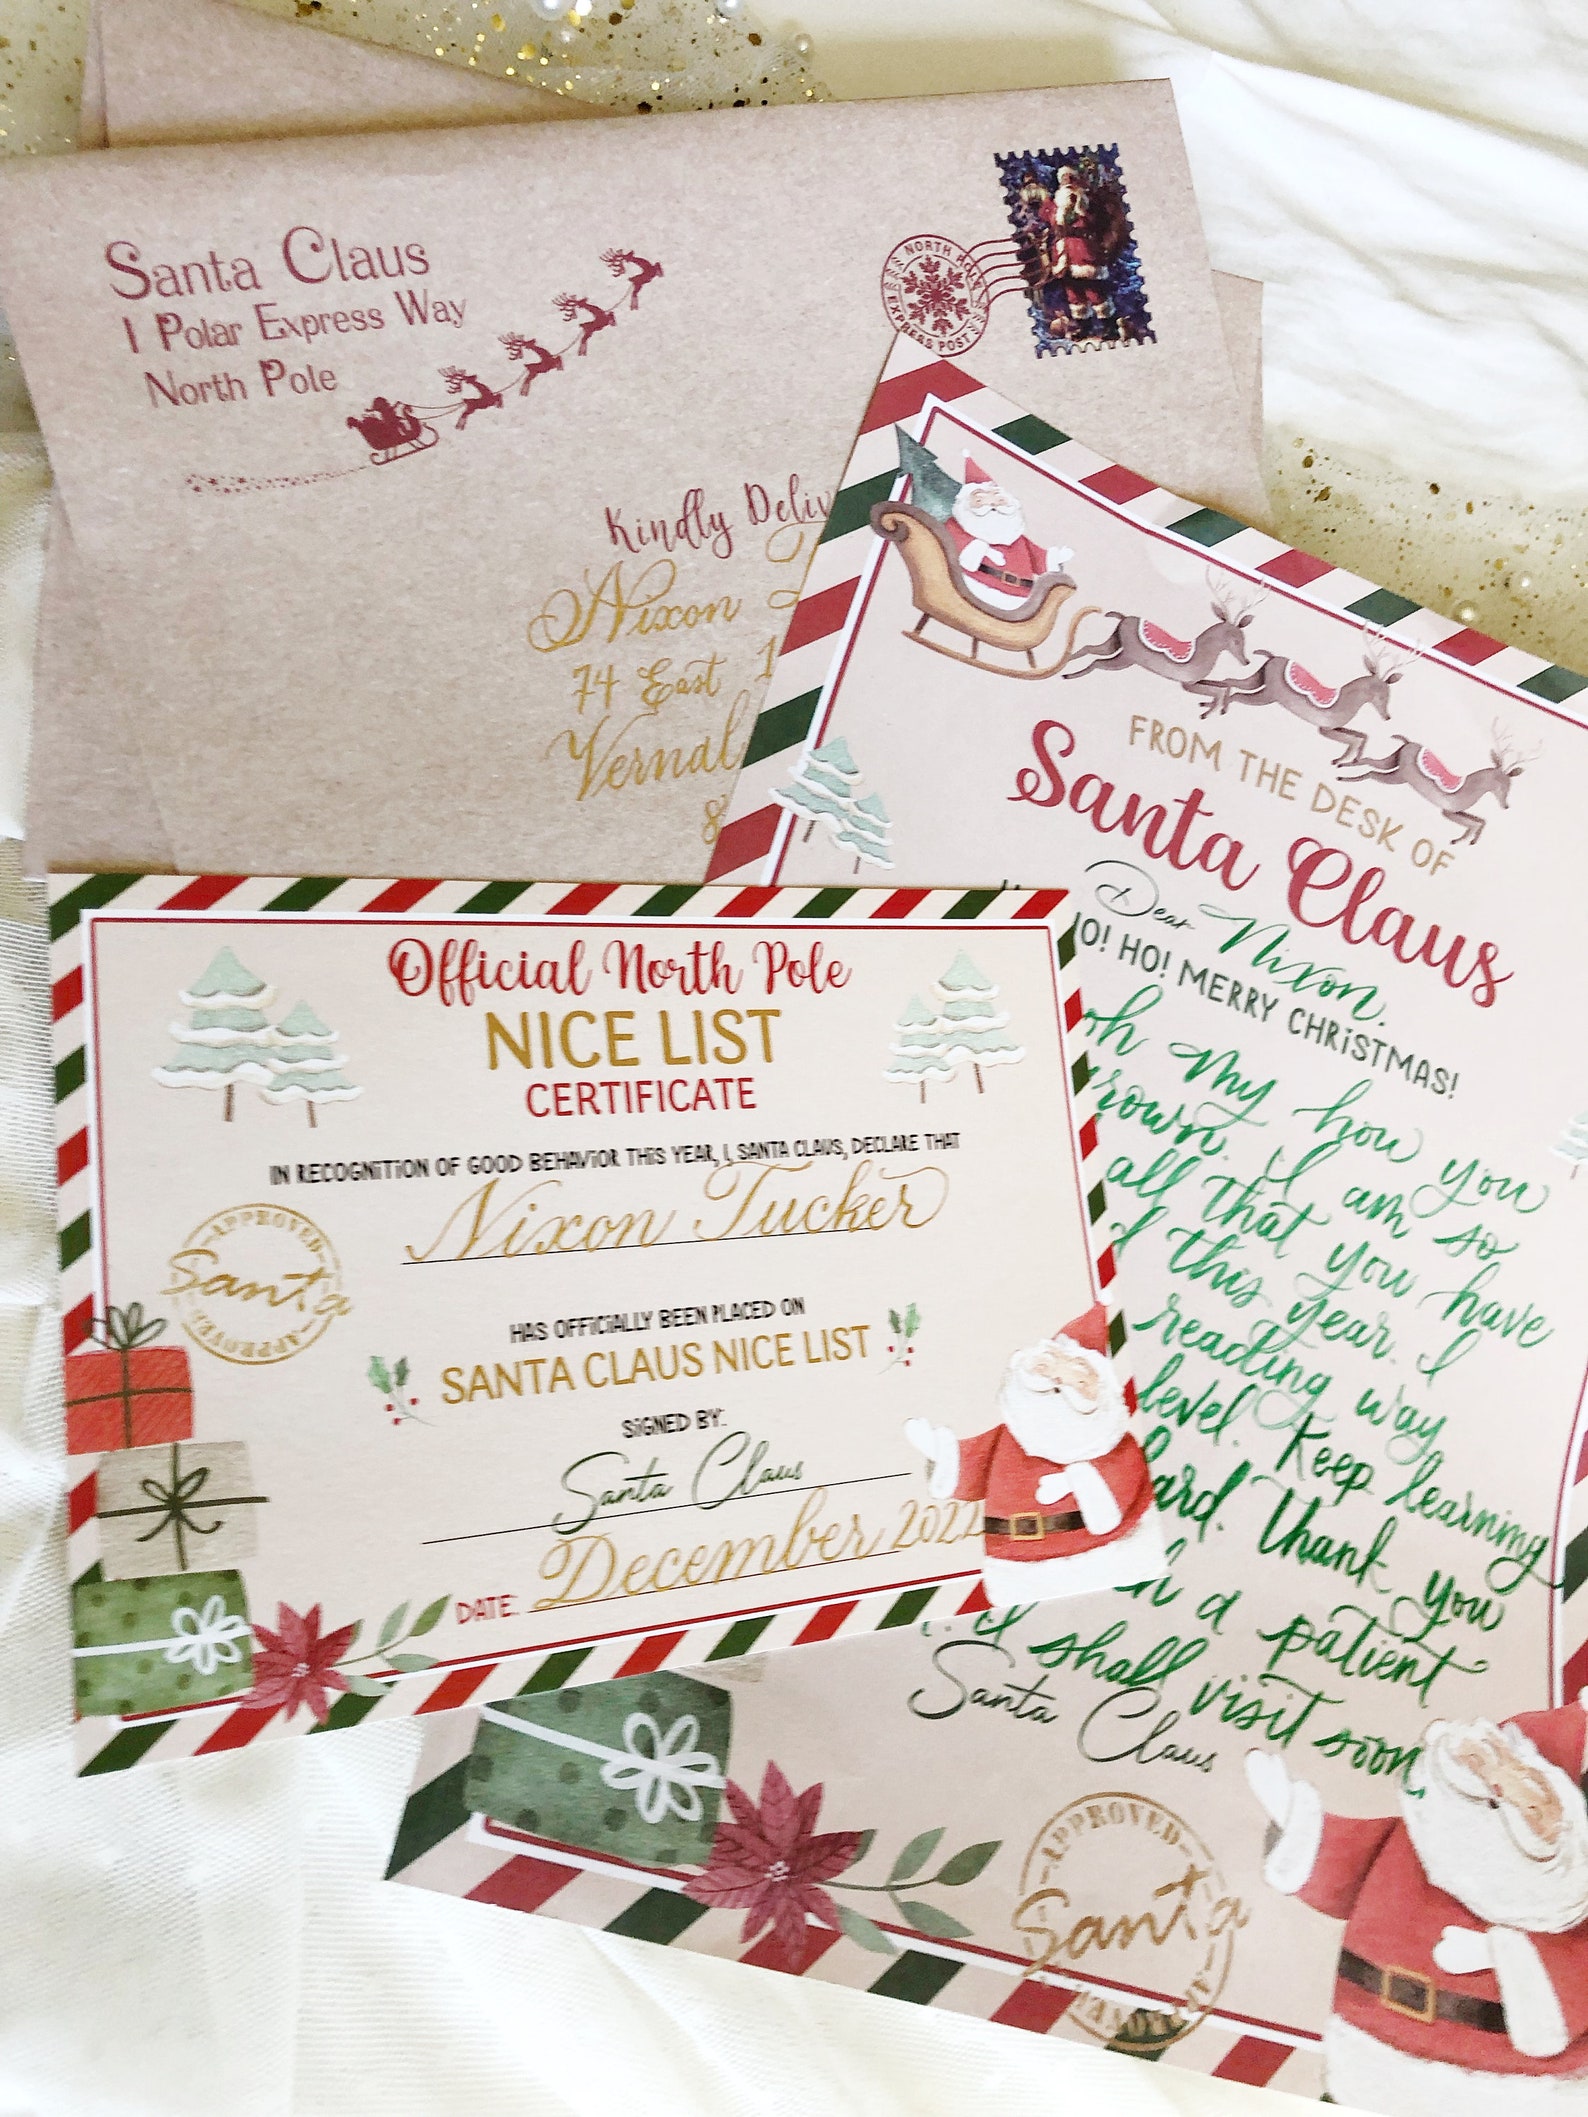 Santa Claus
1 Polar Express Way
North Pole
NORTH POLE
EXPRESS POST
Kindly Deliv
Nixon T
74 East 1
Vernal
8
FROM THE DESK OF
Santa Claus
Dear Nixon.
HO! HO! MERRY CHRISTMAS!
oh My how you
grown. I am so
all that you have
this year. I
reading way
level. Keep learning
hard. Thank you
a patient
I shall visit soon.
Santa Claus
APPROVED
Santa
APPROVED
Official North Pole
NICE LIST
CERTIFICATE
IN RECOGNITION OF GOOD BEHAVIOR THIS YEAR, I, SANTA CLAUS, DECLARE THAT
Nixon Tucker
APPROVED
Santa
APPROVED
HAS OFFICIALLY BEEN PLACED ON
SANTA CLAUS NICE LIST
SIGNED BY:
Santa Claus
DATE: December 2022